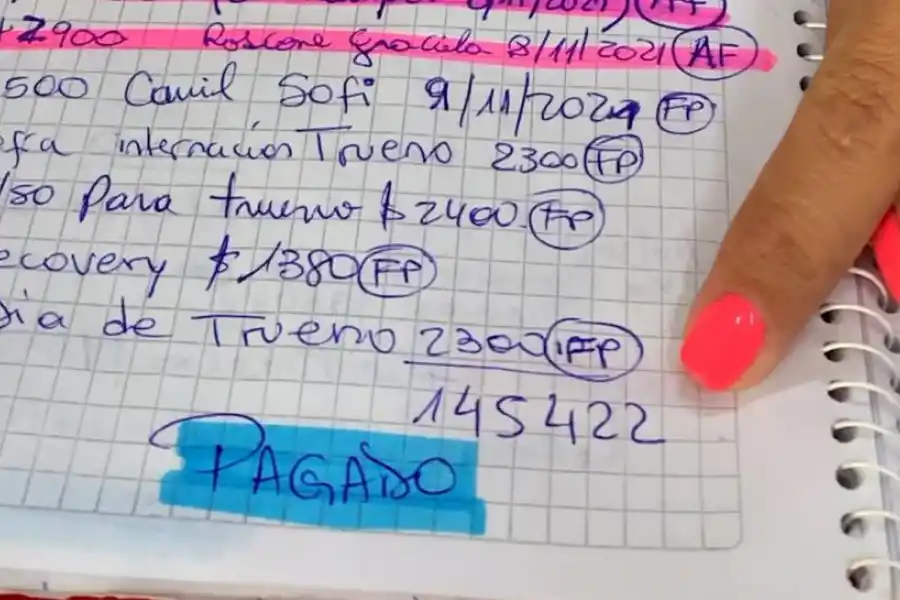 2900 Roscone Graciela 8/11/2021 AF
500 Canil Sofi 9/11/2021 FP
internación Trueno 2300 FP
Para trueno $2400 FP
ecovery $1380 FP
ia de Trueno 2300 FP
145422
PAGADO